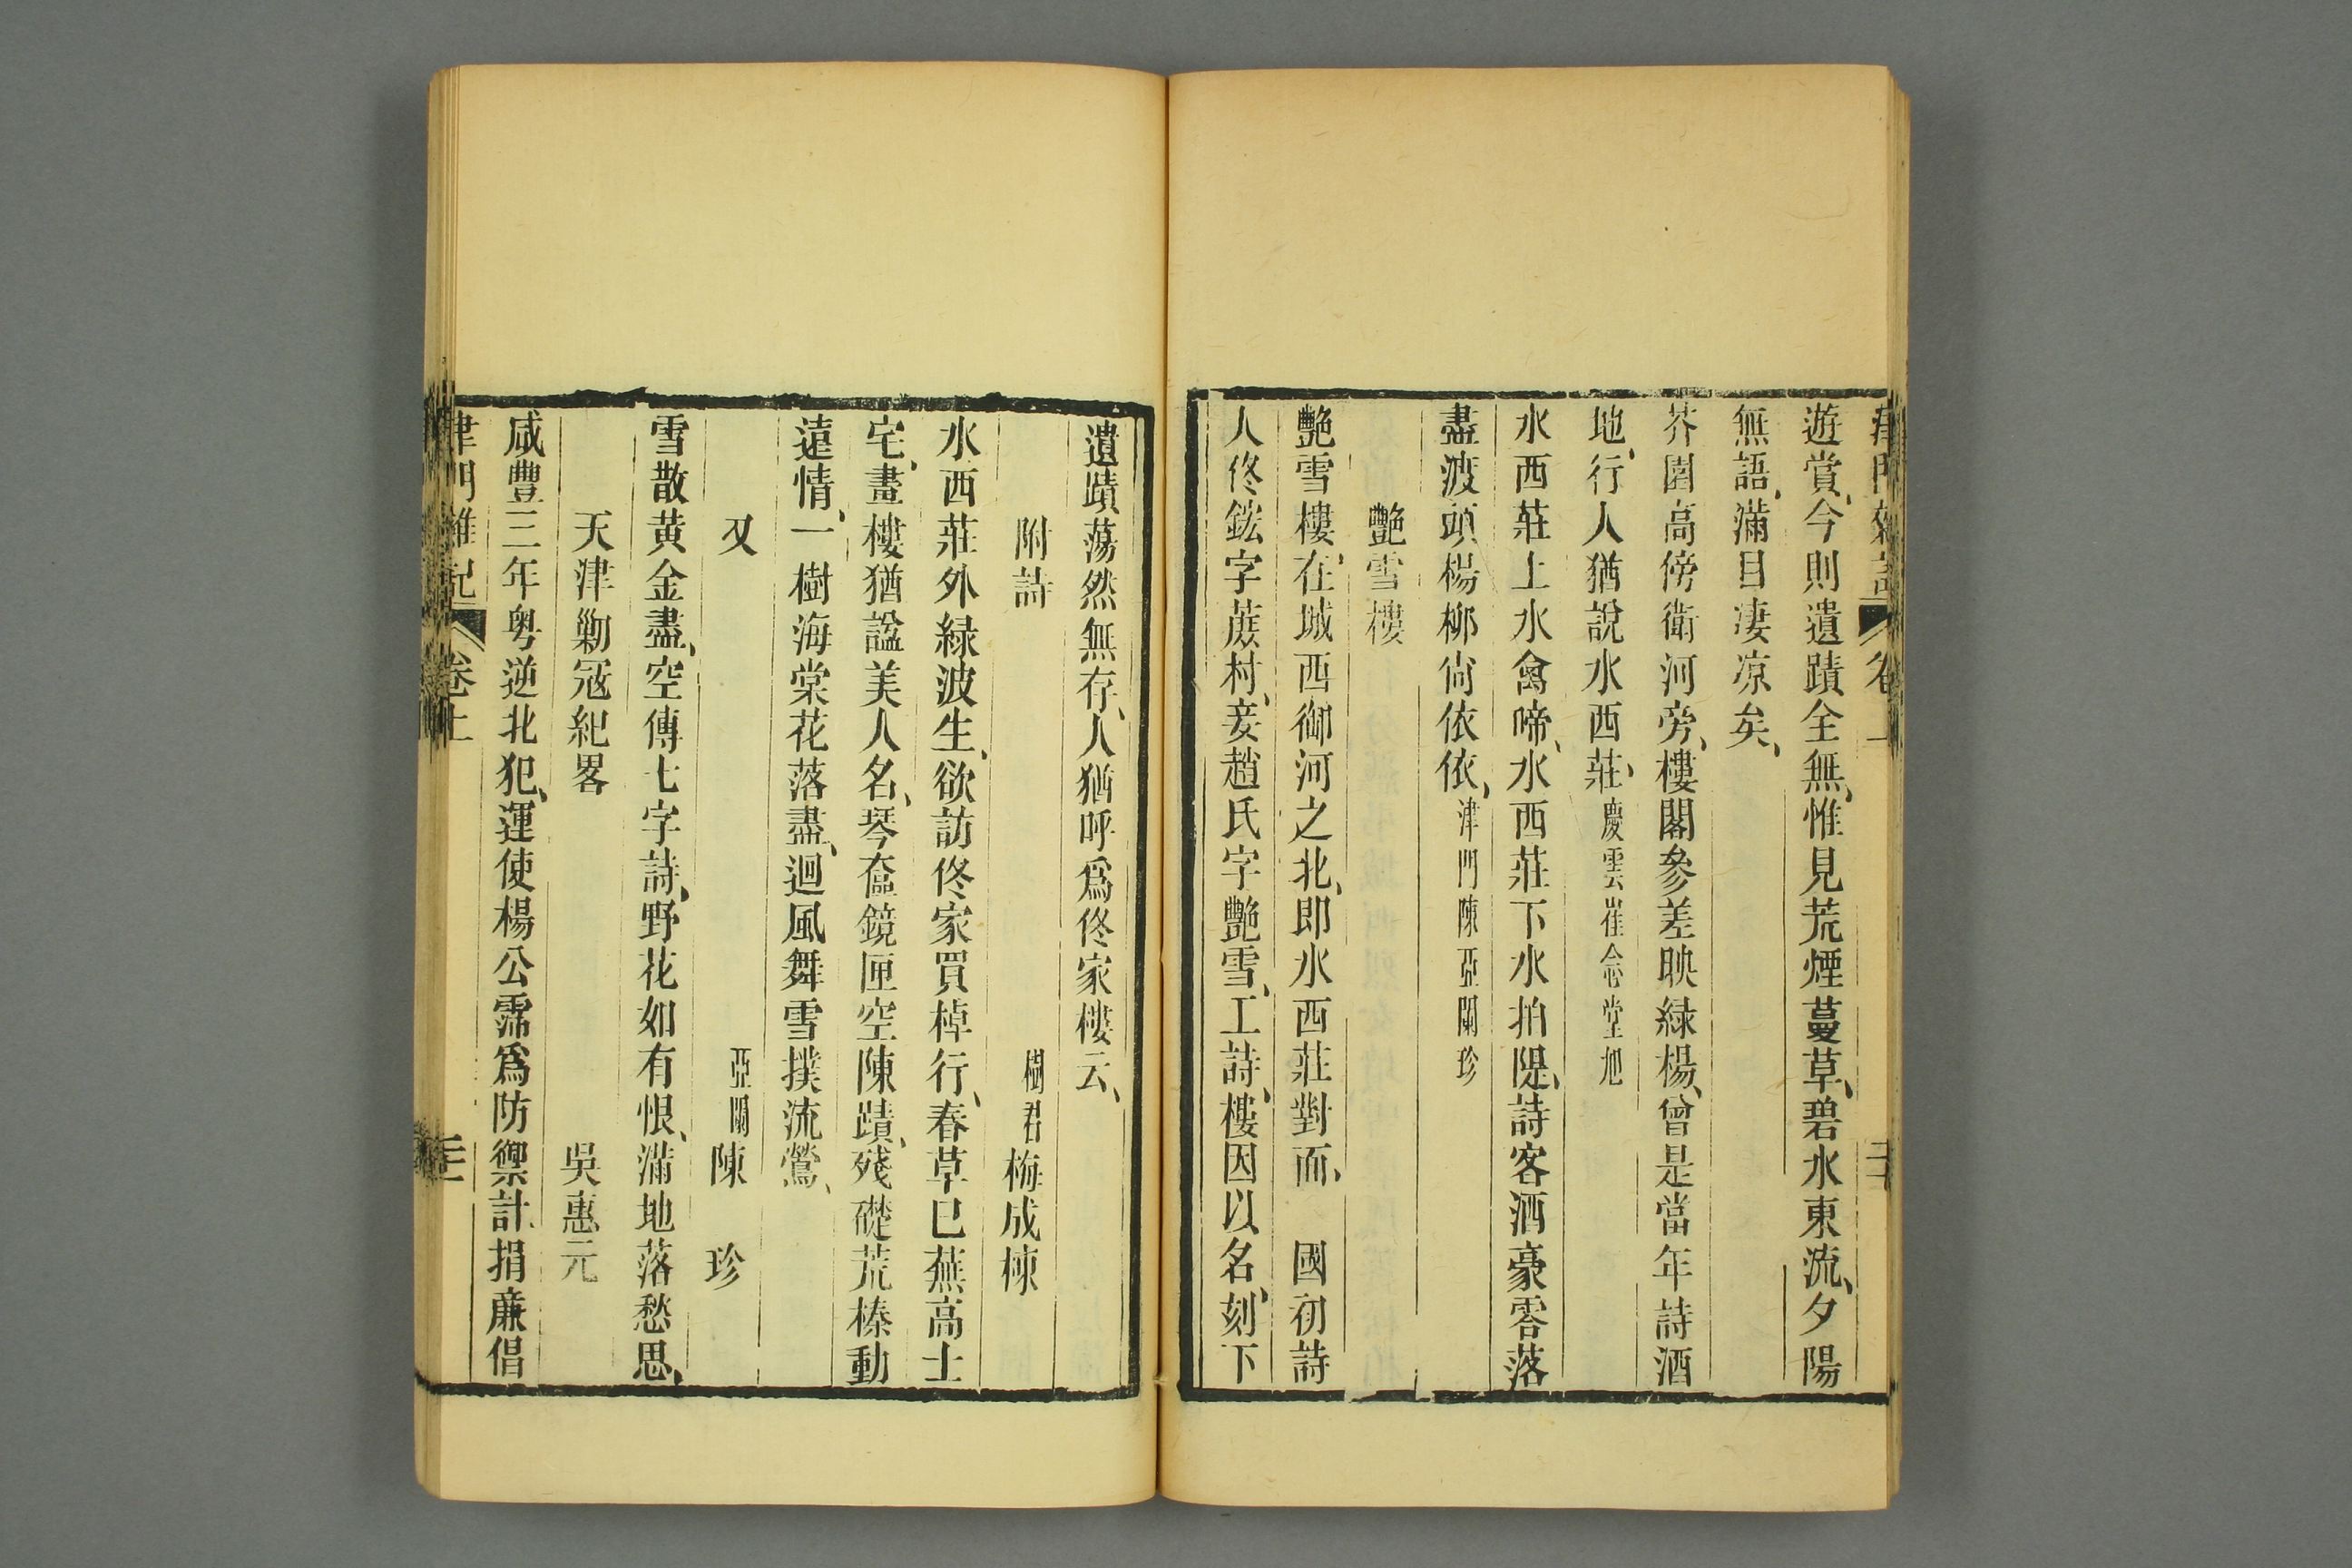 津門雜記 卷上
遊賞、今則遺蹟全無、惟見荒煙蔓草、碧水東流、夕陽
無語、滿目凄凉矣、
芥園高傍衛河旁、樓閣參差映緑楊、曾是當年詩酒
地、行人猶說水西莊、慶雲崔念堂旭
水西莊上水禽啼、水西莊下水拍隄、詩客酒豪零落
盡、波頭楊柳尙依依、津門陳亞蘭珍
艷雪樓
艷雪樓、在城西御河之北、即水西莊對面、 國初詩
人佟鋐字蔗村、妾趙氏字艷雪、工詩、樓因以名、刻下
遺蹟蕩然無存、人猶呼爲佟家樓云、
附詩 樹君梅成棟
水西莊外緑波生、欲訪佟家買棹行、春草已蕪高士
宅、畫樓猶諡美人名、琴奩鏡匣空陳蹟、殘礎荒榛動
遠情、一樹海棠花落盡、迴風舞雪撲流鶯、
又 亞蘭陳 珍
雪散黄金盡、空傳七字詩、野花如有恨、滿地落愁思、
天津勦冦紀畧 吳惠元
咸豐三年粤逆北犯、運使楊公霈爲防禦計、捐亷倡
津門雜記 卷上